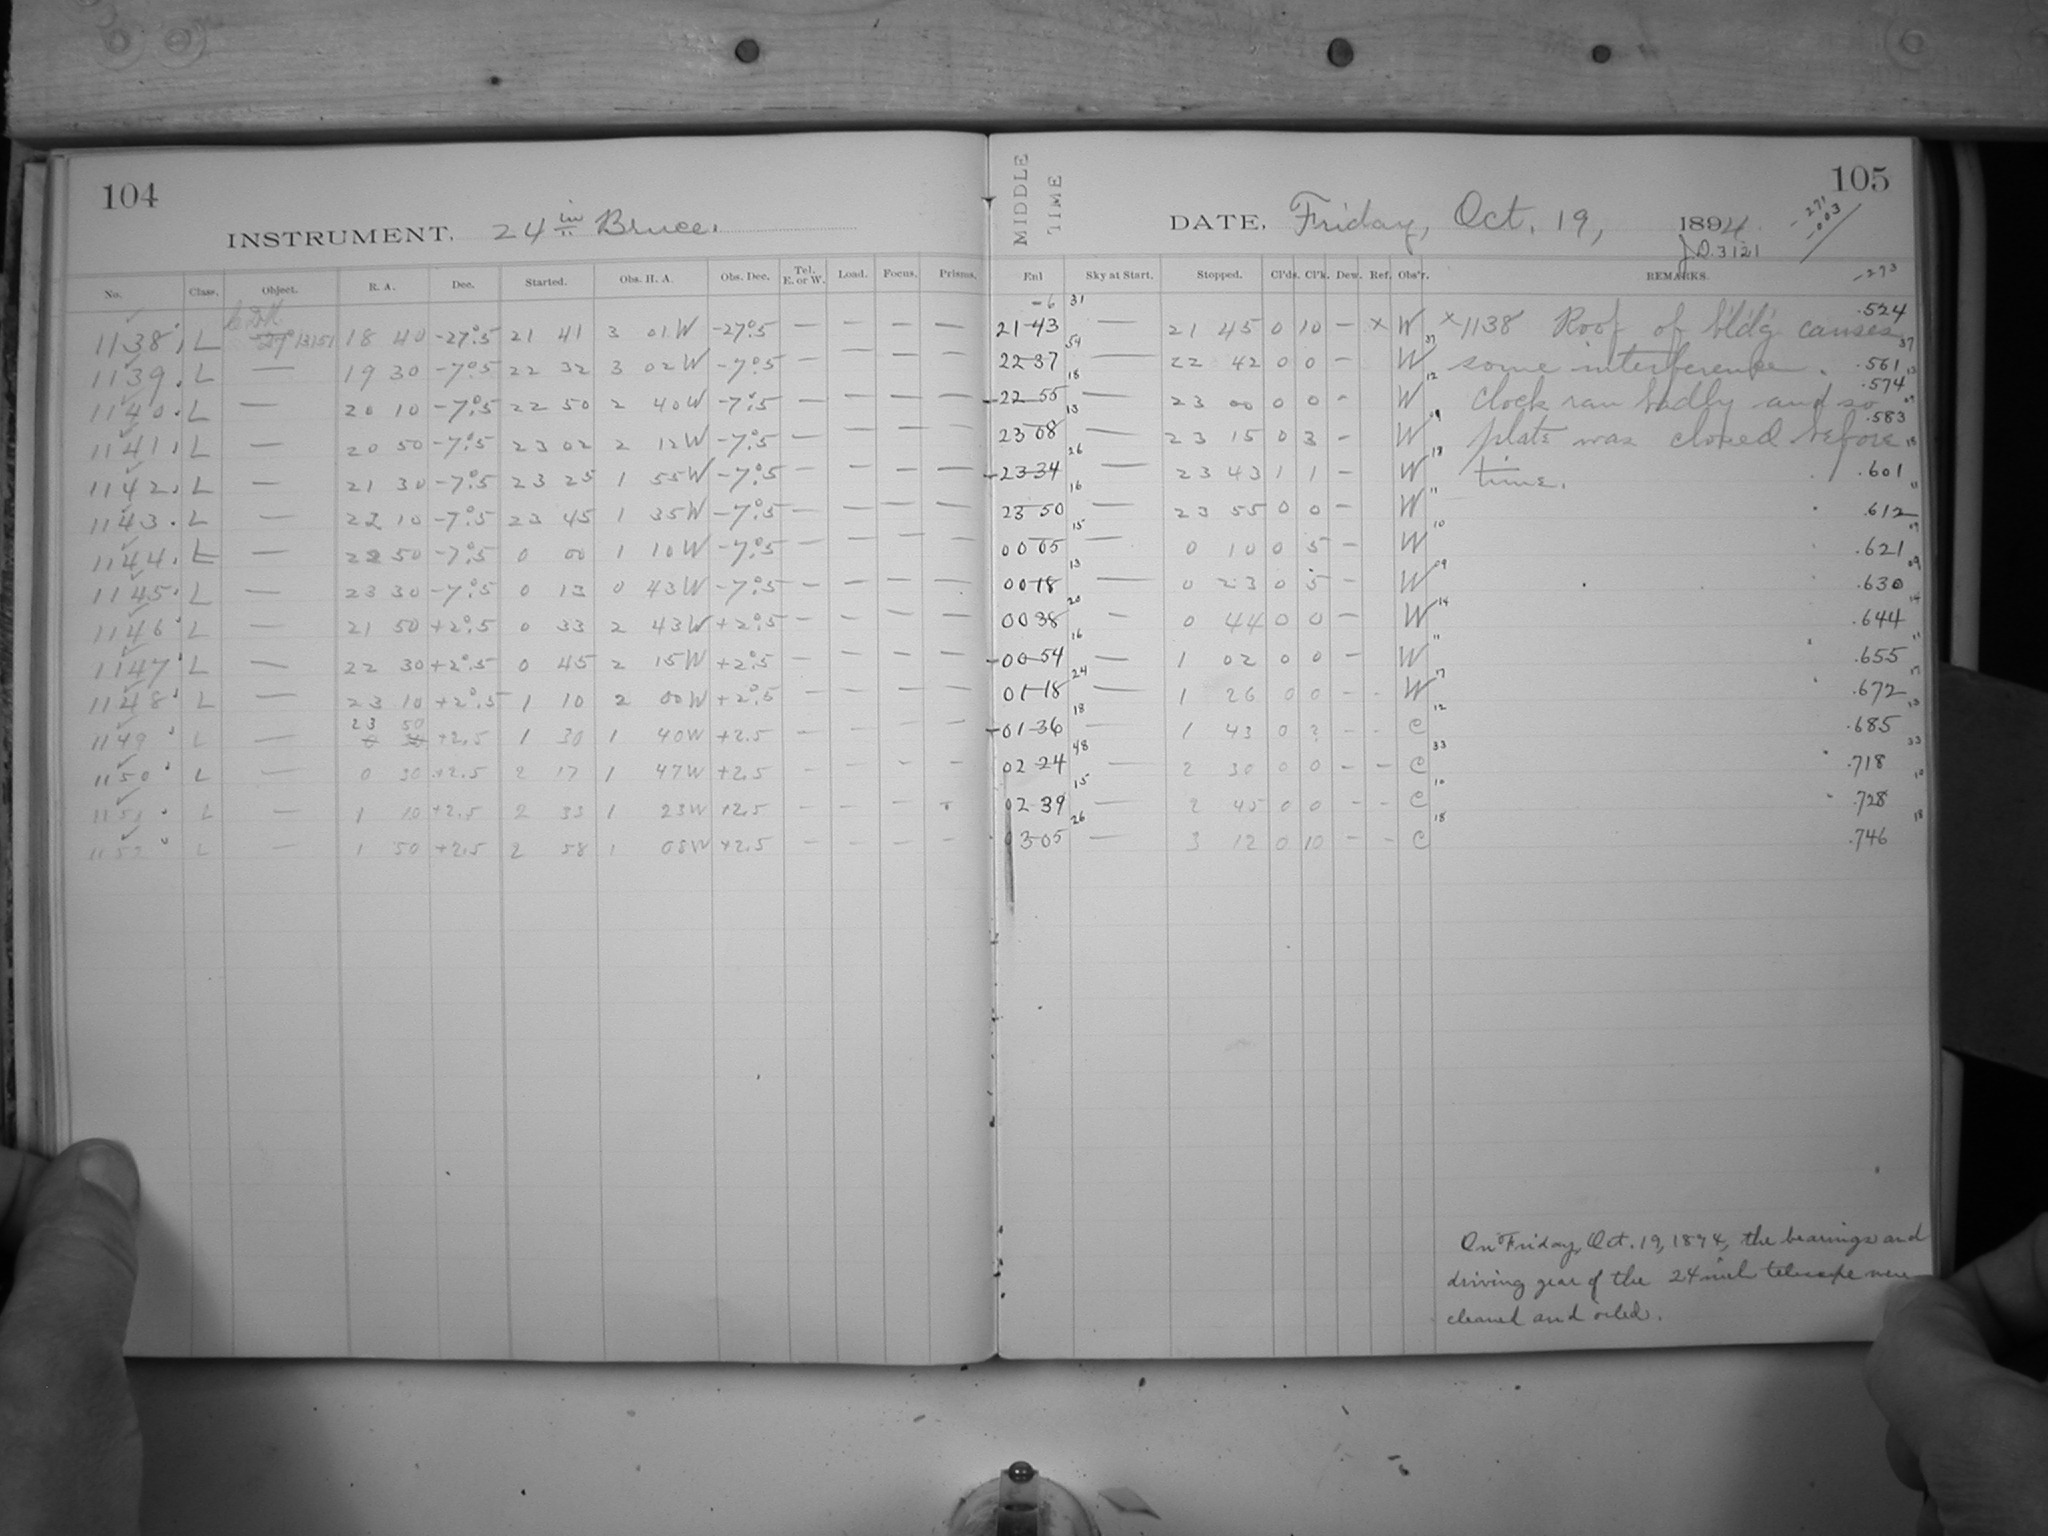 104
INSTRUMENT. 24 in Bruce.
No. Class. Object. R. A. Dec. Started. Obs. H. A. Obs. Dec. Tel. E. or W. Load. Focus. Prisms.
1138 L -27° 13151 18 40 -27°.5 21 41 3 01 W -27°.5 — — — —
1139 L — 19 30 -7°.5 22 32 3 02 W -7°.5 — — — —
1140 L — 20 10 -7°.5 22 50 2 40 W -7°.5 — — — —
1141 L — 20 50 -7°.5 23 02 2 12 W -7°.5 — — — —
1142 L — 21 30 -7°.5 23 25 1 55 W -7°.5 — — — —
1143 L — 22 10 -7°.5 23 45 1 35 W -7°.5 — — — —
1144 L — 22 50 -7°.5 0 00 1 10 W -7°.5 — — — —
1145 L — 23 30 -7°.5 0 13 0 43 W -7°.5 — — — —
1146 L — 21 50 +2°.5 0 33 2 43 W +2°.5 — — — —
1147 L — 22 30 +2°.5 0 45 2 15 W +2°.5 — — — —
1148 L — 23 10 +2°.5 1 10 2 00 W +2°.5 — — — —
1149 L — 23 50 +2.5 1 30 1 40 W +2.5 — — — —
1150 L — 0 30 +2.5 2 17 1 47 W +2.5 — — — —
1151 L — 1 10 +2.5 2 33 1 23 W +2.5 — — —
1152 L — 1 50 +2.5 2 58 1 08 W +2.5 — — — —
MIDDLE TIME
105
DATE, Friday, Oct. 19, 1894
J.D. 3121
-271
-003
-273
Enl Sky at Start. Stopped. Cl'ds. Cl'k. Dew. Ref. Obs'r. REMARKS.
-6 31
21 43 — 21 45 0 10 — × W × 1138 Roof of bldg causes .524
54 37 37
22 37 — 22 42 0 0 — W some interference. .561
18 12 13
22 55 — 23 00 0 0 — W Clock ran badly and so .574
13 09 09
23 08 — 23 15 0 3 — W plate was closed before .583
26 18 18
23 34 — 23 43 1 1 — W time. .601
16 11 11
23 50 — 23 55 0 0 — W .612
15 10 09
00 05 — 0 10 0 5 — W .621
13 09 09
00 18 — 0 23 0 5 — W .630
20 14 14
00 38 — 0 44 0 0 — W .644
16 11 11
00 54 — 1 02 0 0 — W .655
24 17 17
01 18 — 1 26 0 0 — - W .672
18 12 13
01 36 — 1 43 0 2 - - C .685
48 33 33
02 24 — 2 30 0 0 — — C .718
15 10 10
02 39 — 2 45 0 0 — - C .728
26 18 18
03 05 — 3 12 0 10 — — C .746
On Friday, Oct. 19, 1894, the bearings and
driving gear of the 24 inch telescope were
cleaned and oiled.